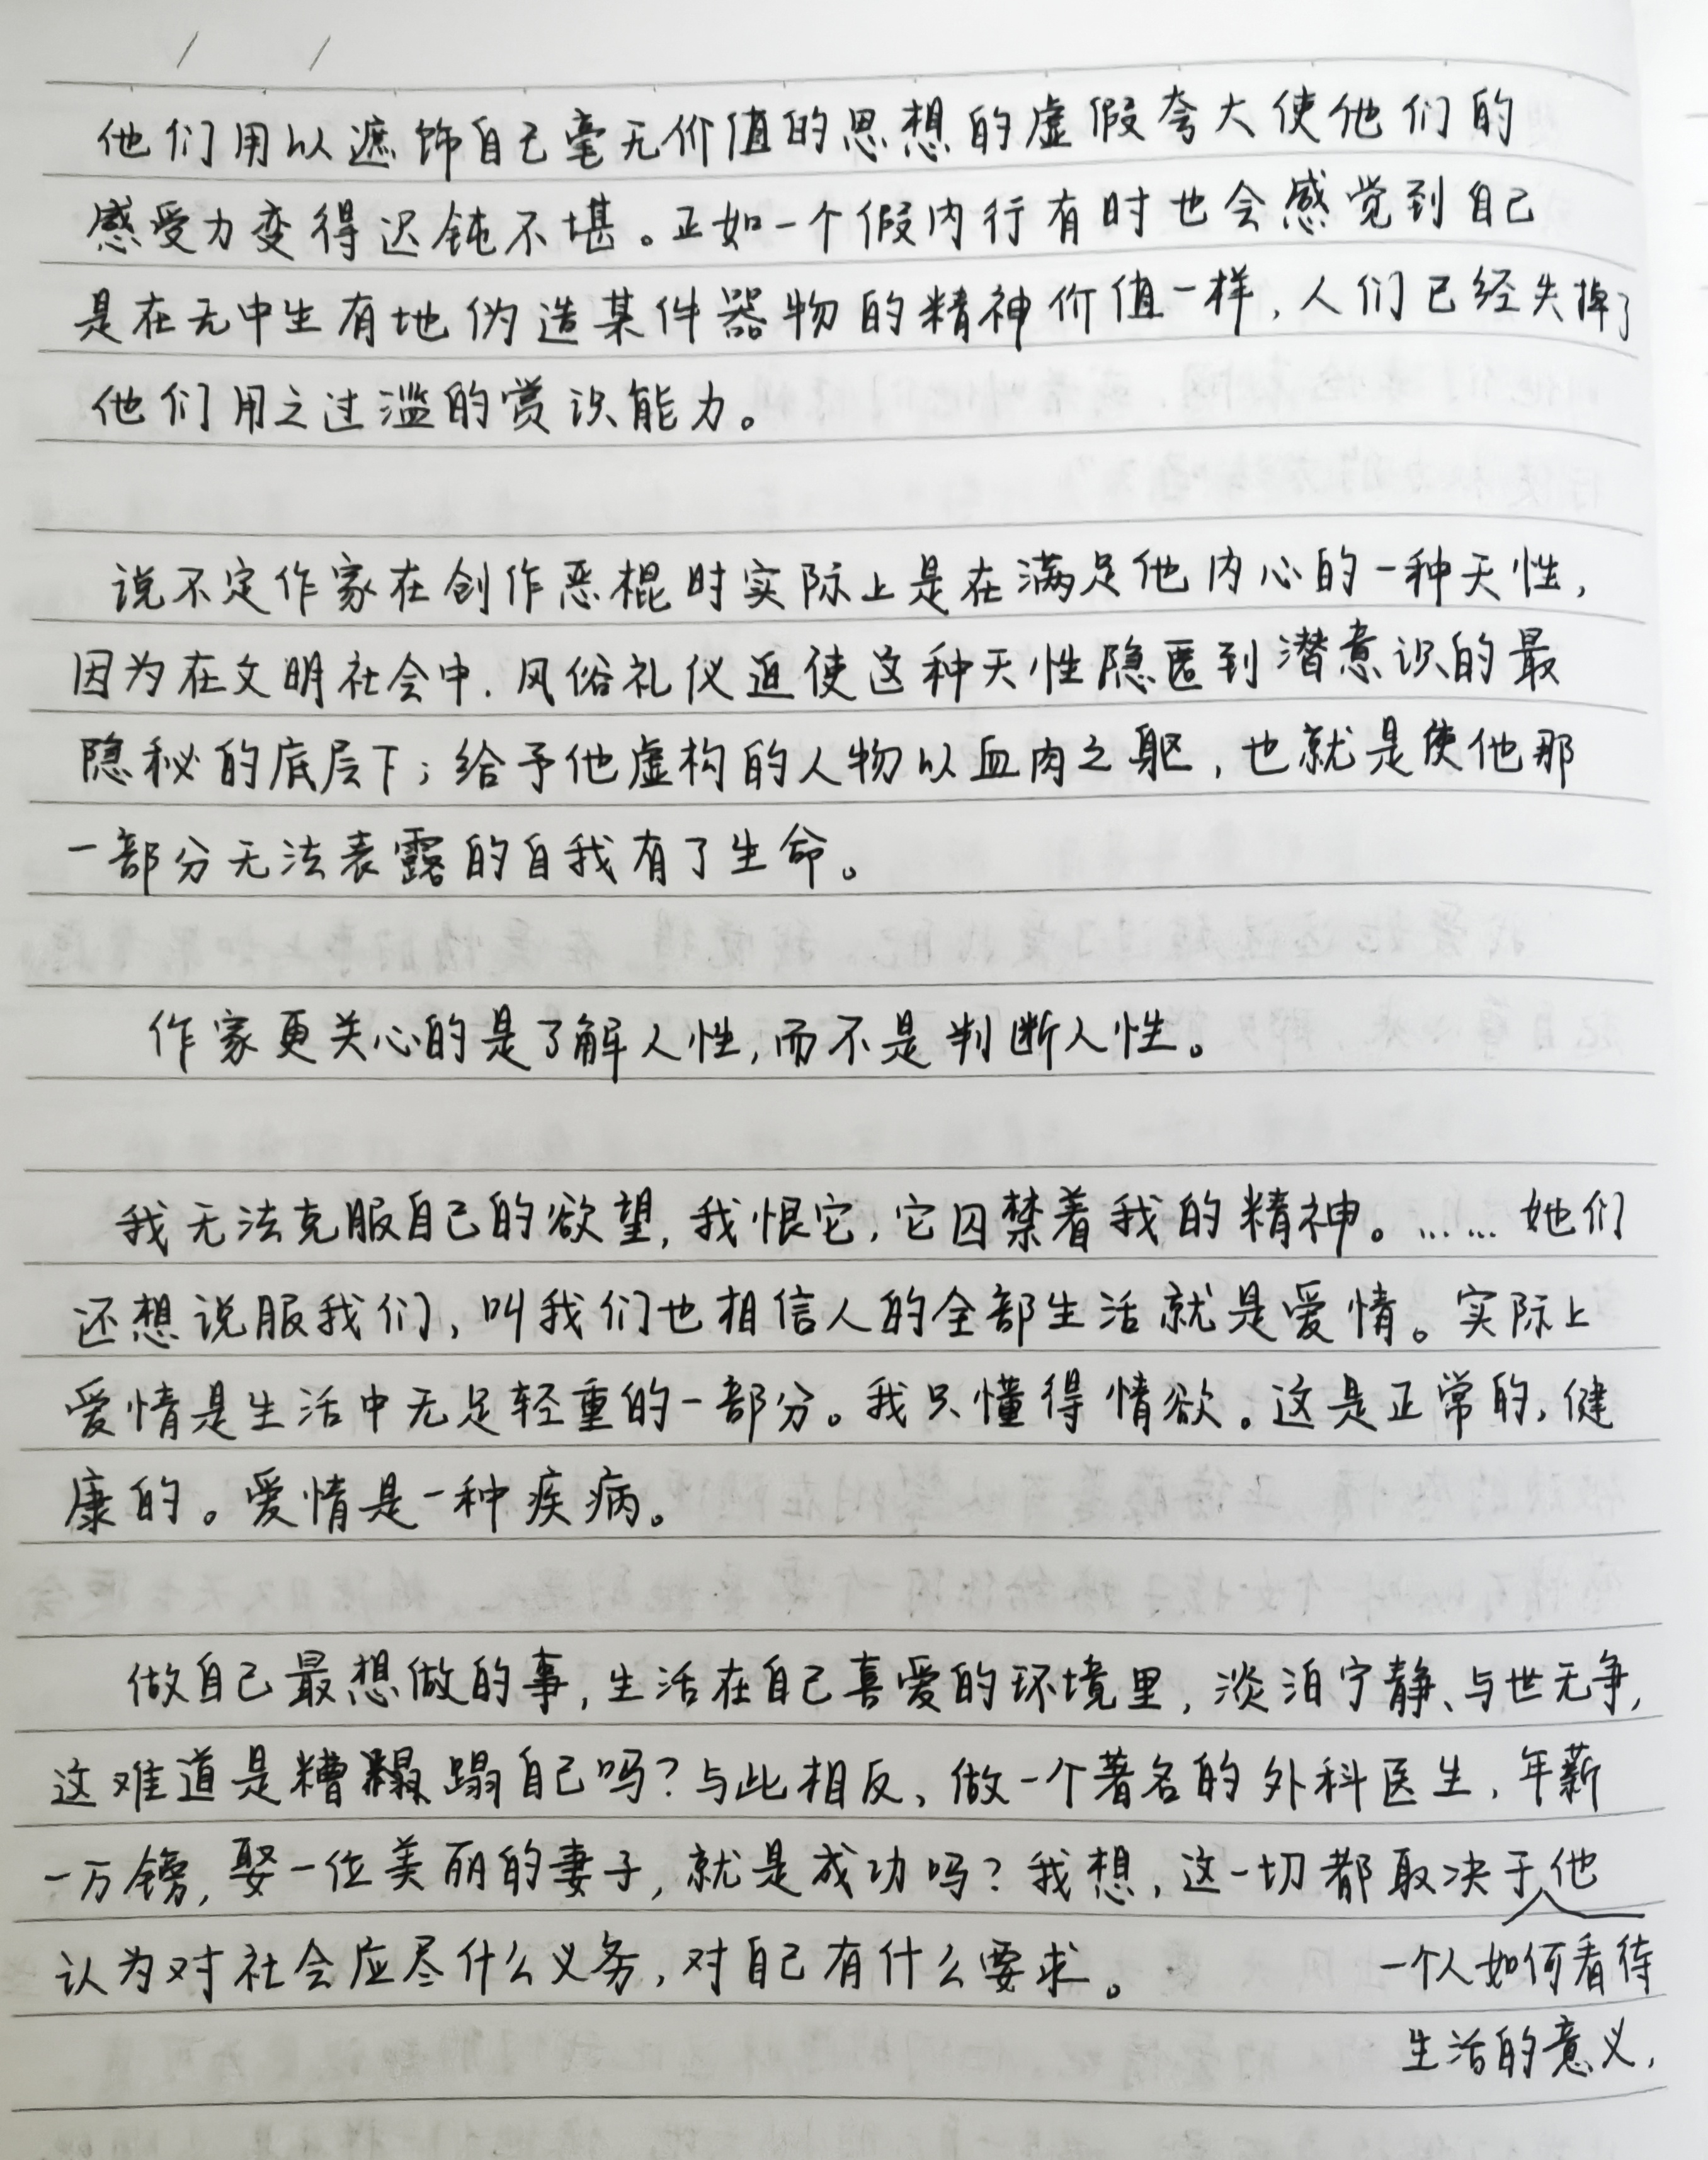 他们用以遮饰自己毫无价值的思想的虚假夸大使他们的
感受力变得迟钝不堪。正如一个假内行有时也会感觉到自己
是在无中生有地伪造某件器物的精神价值一样，人们已经失掉了
他们用之过滥的赏识能力。
说不定作家在创作恶棍时实际上是在满足他内心的一种天性，
因为在文明社会中，风俗礼仪迫使这种天性隐匿到潜意识的最
隐秘的底层下；给予他虚构的人物以血肉之躯，也就是使他那
一部分无法表露的自我有了生命。
作家更关心的是了解人性，而不是判断人性。
我无法克服自己的欲望，我恨它，它囚禁着我的精神。……她们
还想说服我们，叫我们也相信人的全部生活就是爱情。实际上
爱情是生活中无足轻重的一部分。我只懂得情欲。这是正常的，健
康的。爱情是一种疾病。
做自己最想做的事，生活在自己喜爱的环境里，淡泊宁静、与世无争，
这难道是糟蹋自己吗？与此相反，做一个著名的外科医生，年薪
一万镑，娶一位美丽的妻子，就是成功吗？我想，这一切都取决于他
认为对社会应尽什么义务，对自己有什么要求。
一个人如何看待
生活的意义，